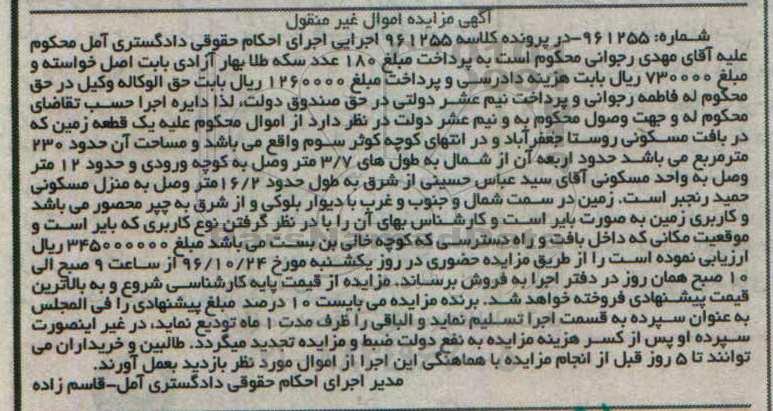 آگهی مزایده اموال غیر منقول
شماره: ۹۶۱۲۵۵-در پرونده کلاسه ۹۶۱۲۵۵ اجرایی اجرای احکام حقوقی دادگستری آمل محکوم
علیه آقای مهدی رجوانی محکوم است به پرداخت مبلغ ۱۸۰ عدد سکه طلا بهار آزادی بابت اصل خواسته و
مبلغ ۷۳۰۰۰۰ ریال بابت هزینه دادرسی و پرداخت مبلغ ۱۲۶۰۰۰۰ ریال بابت حق الوکاله وکیل در حق
محکوم له فاطمه رجوانی و پرداخت نیم عشر دولتی در حق صندوق دولت، لذا دایره اجرا حسب تقاضای
محکوم له و جهت وصول محکوم به و نیم عشر دولت در نظر دارد از اموال محکوم علیه یک قطعه زمین که
در بافت مسکونی روستا جعفرآباد و در انتهای کوچه کوثر سوم واقع می باشد و مساحت آن حدود ۲۳۰
مترمربع می باشد حدود اربعه آن از شمال به طول های ۳/۷ متر وصل به کوچه ورودی و حدود ۱۲ متر
وصل به واحد مسکونی آقای سید عباس حسینی از شرق به طول حدود ۱۶/۲ متر وصل به منزل مسکونی
حمید رنجبر است. زمین در سمت شمال و جنوب و غرب با دیوار بلوکی و از شرق به چپر محصور می باشد
و کاربری زمین به صورت بایر است و کارشناس بهای آن را با در نظر گرفتن نوع کاربری که بایر است و
موقعیت مکانی که داخل بافت و راه دسترسی که کوچه خالی بن بست می باشد مبلغ ۳۴۵۰۰۰۰۰۰ ریال
ارزیابی نموده است را از طریق مزایده حضوری در روز یکشنبه مورخ ۹۶/۱۰/۲۴ از ساعت ۹ صبح الی
۱۰ صبح همان روز در دفتر اجرا به فروش برساند. مزایده از قیمت پایه کارشناسی شروع و به بالاترین
قیمت پیشنهادی فروخته خواهد شد. برنده مزایده می بایست ۱۰ درصد مبلغ پیشنهادی را فی المجلس
به عنوان سپرده به قسمت اجرا تسلیم نماید و الباقی را ظرف مدت ۱ ماه تودیع نماید، در غیر اینصورت
سپرده او پس از کسر هزینه مزایده به نفع دولت ضبط و مزایده تجدید میگردد. طالبین و خریداران می
توانند تا ۵ روز قبل از انجام مزایده با هماهنگی این اجرا از اموال مورد نظر بازدید بعمل آورند.
مدیر اجرای احکام حقوقی دادگستری آمل-قاسم زاده